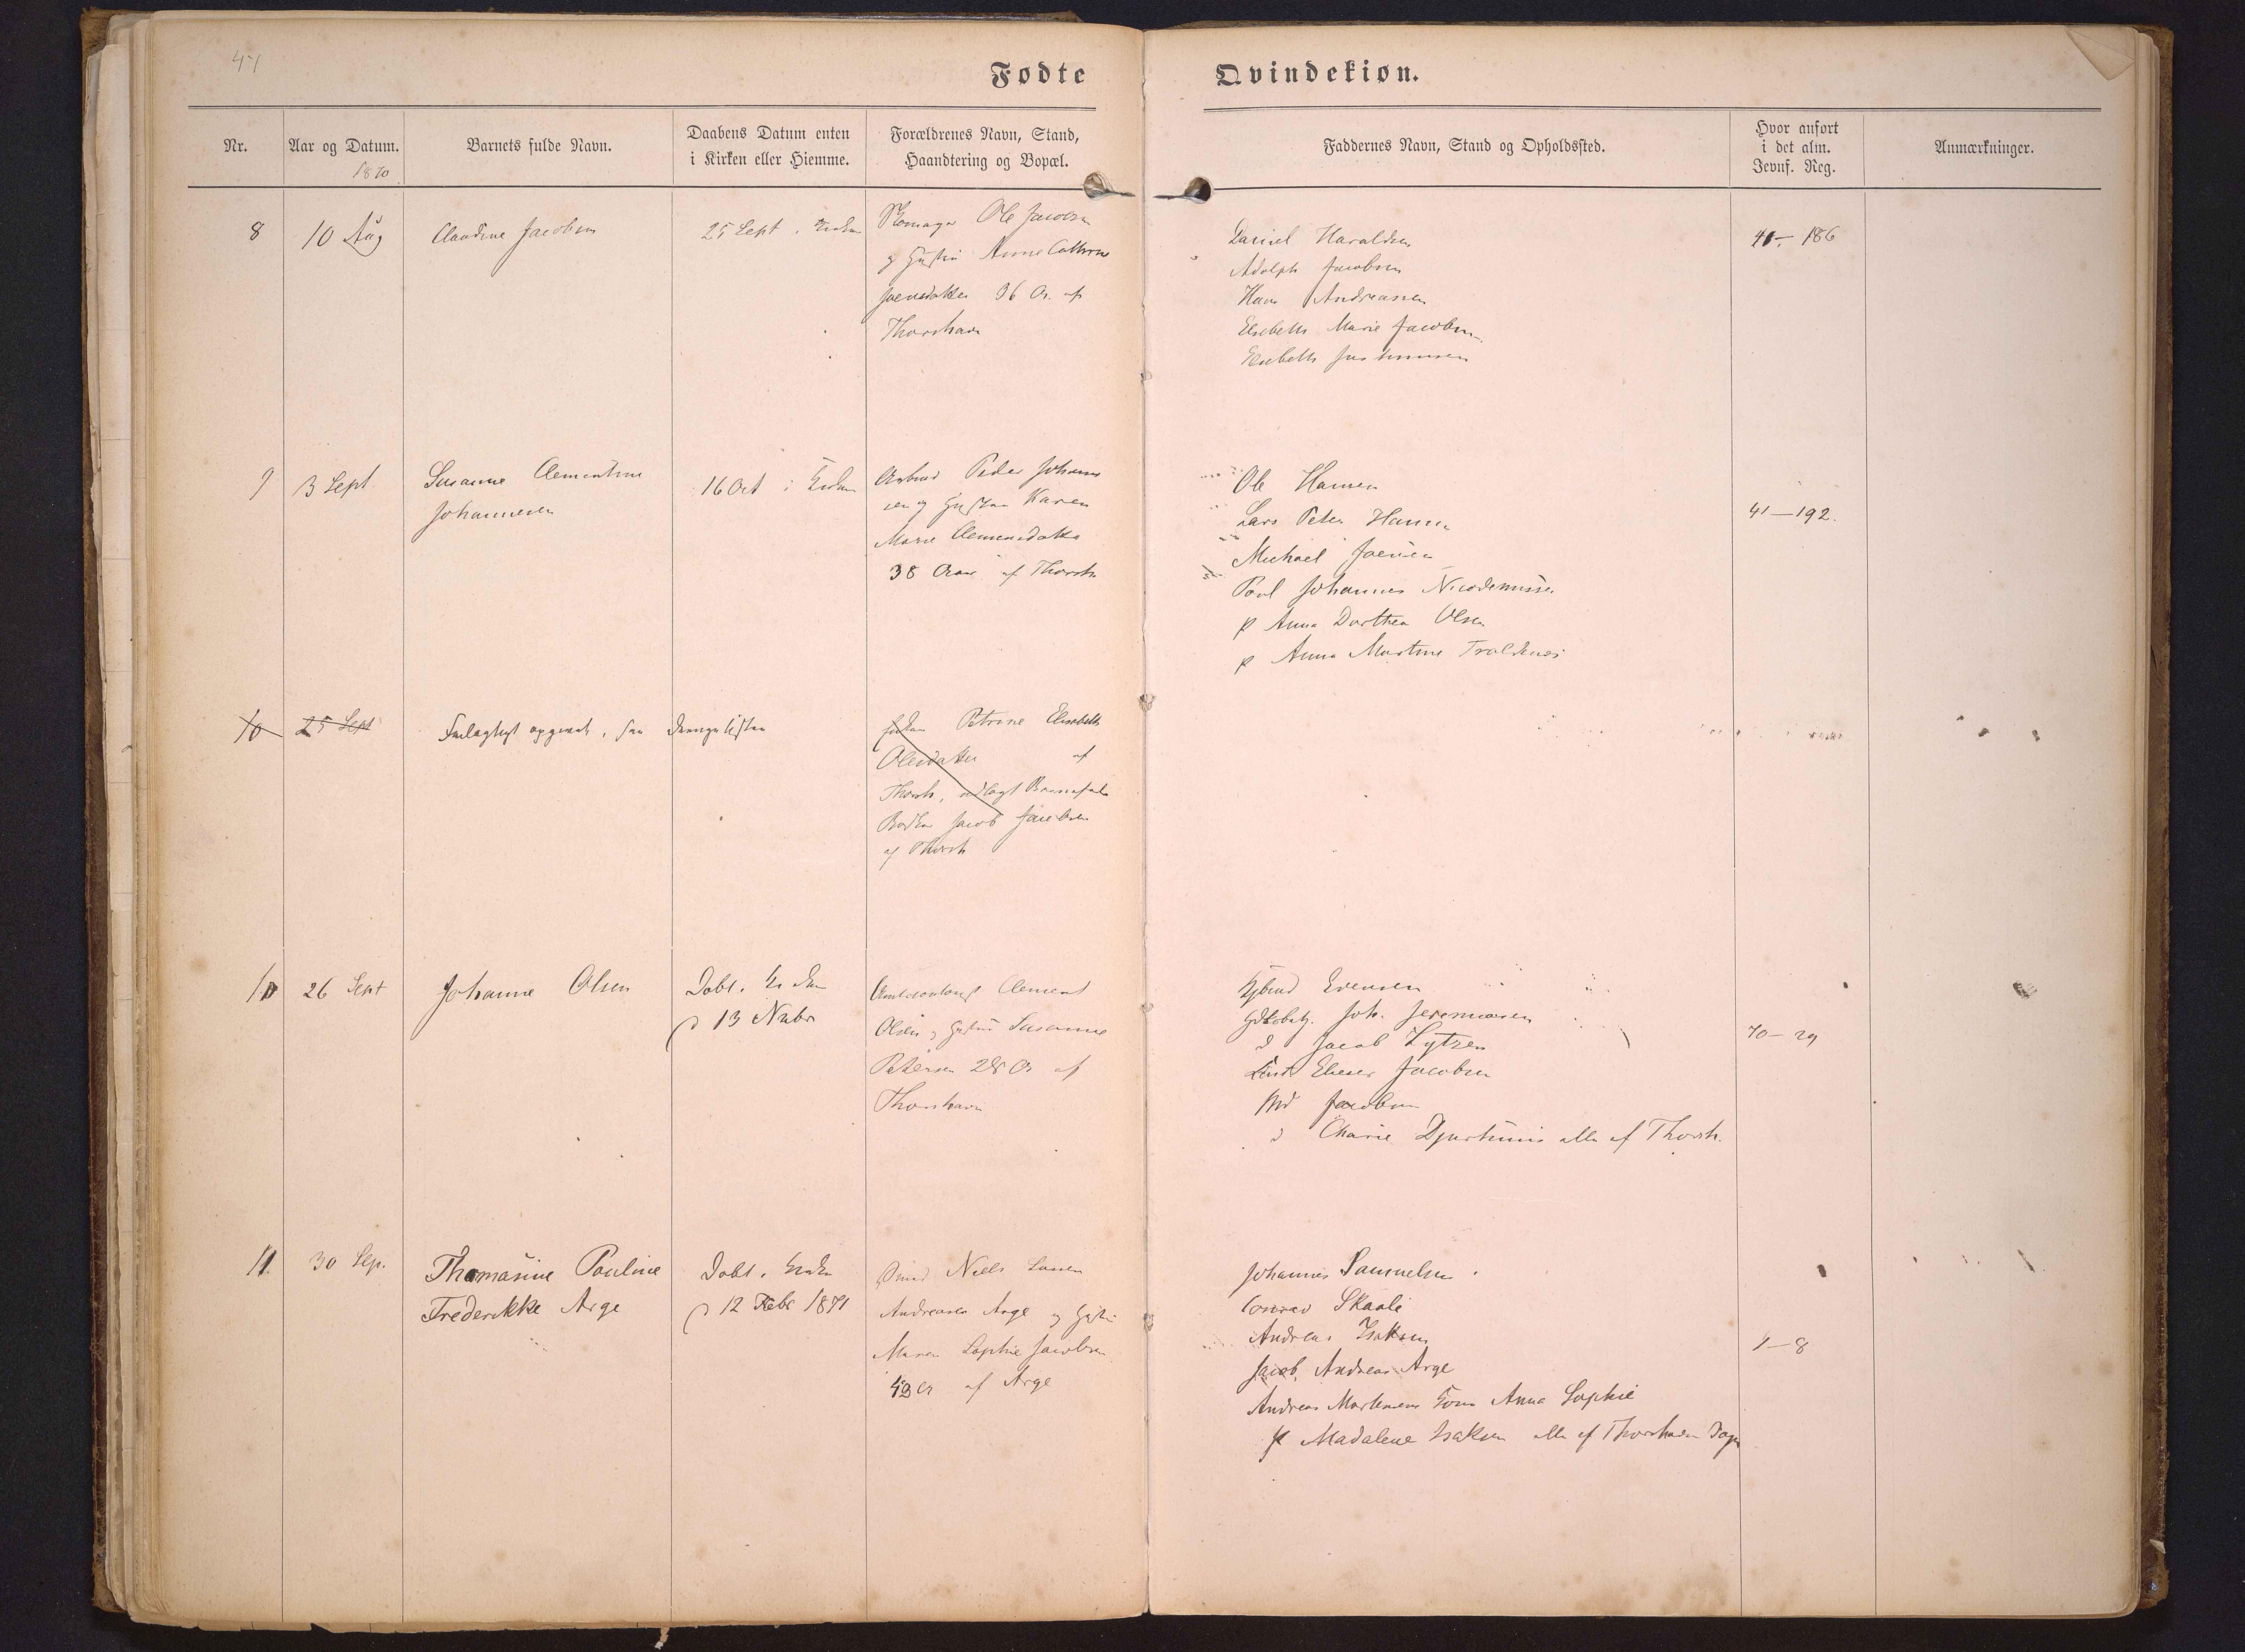 47
Fødte Qvindekiøn.
Nr.
Aar og Datum.
1870
Barnets fulde Navn.
Daabens Datum enten
i Kirken eller Hiemme.
Forældrenes Navn, Stand,
Haandtering og Bopæl.
Faddernes Navn, Stand og Opholdssted.
Hvor anført
i det alm.
Jevnf. Reg.
Anmærkninger.
8
10 Aug
Claudine Jacobsen
25 Sept. i Kirken
Ole Jacobsen
og Hustru Anne Cathrine
Joensdatter 36 Ar. af
Thorshavn
Daniel Haraldsen
Adolph Jacobsen
Hans Andreasen
Elsebeth Marie Jacobsen
Elsebeth Justinussen
41 - 186
9
3 Sept.
Susanne Clementine
Johannesen
16 Oct i Kirken
Arbmd Peder Johannes
sen og Hustru Karen
Marie Clemensdatter
38 Aar af Thorsh.
Ole Hansen
Lars Peter Hansen
Michael Joensen
Poul Johannes Nicodemussen
p Anna Dorthea Olsen
p Anna Martine Traldnes
41 - 192.
10
25 Sept
Feilagtigt opgivet, see Drengelisten
Petrine Elisabeth
Olesdatter af
Thorsh, udlagt Barnefader
Jacob Jacobsen
af Thorsh
10
26 Sept
Johanne Olsen
Døbt i Kirken
d 13 Nvbr
Clement
Olsen og Hustru Susanne
Petersen 28 Ar af
Thorshavn
Kjbmd Evensen
Joh. Jeremiasen
d Jacob Lytzen
Elieser Jacobsen
Md Jacobsen
d Djurhuus alle af Thorsh.
70 - 29
11.
30 Sep.
Thomasine Pauline
Frederikke Arge
Døbt i Kirken
d 12 Febr 1871
Niels
Andreasen Arge og Hustru
Maren Sophie Jacobsen
af Arge
Johannes Samuelsen
Conrad Skaale
Andreas Isaksen
Jacob Andreas Arge
Andreas Mortensens Kone Anna Sophie
p Madalene Isaksen alle af Thorshavn Sogn
1 - 8